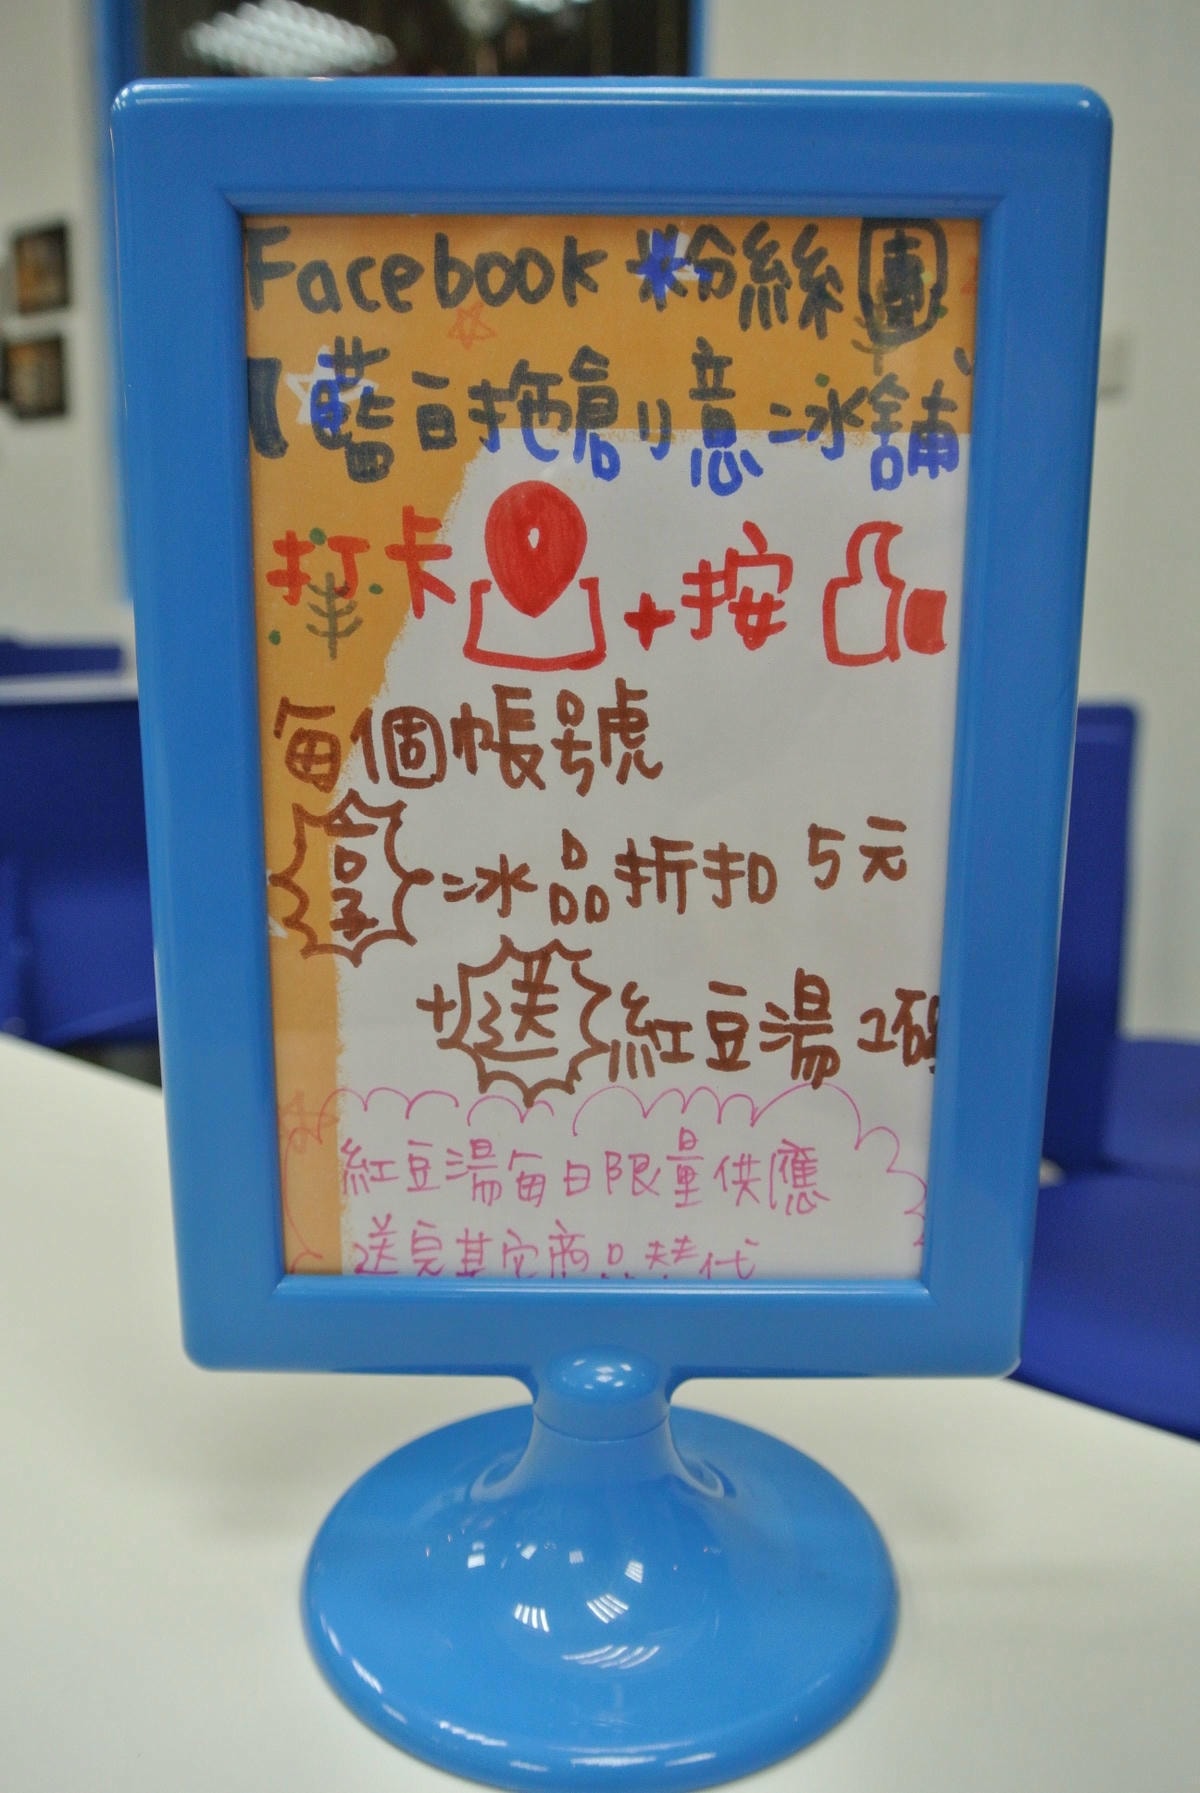 Facebook 粉絲團
【藍白拖創意冰舖
打卡 + 按
每個帳號
享 冰品折扣 5元
+送 紅豆湯 1碗
紅豆湯每日限量供應
送完其它商品替代